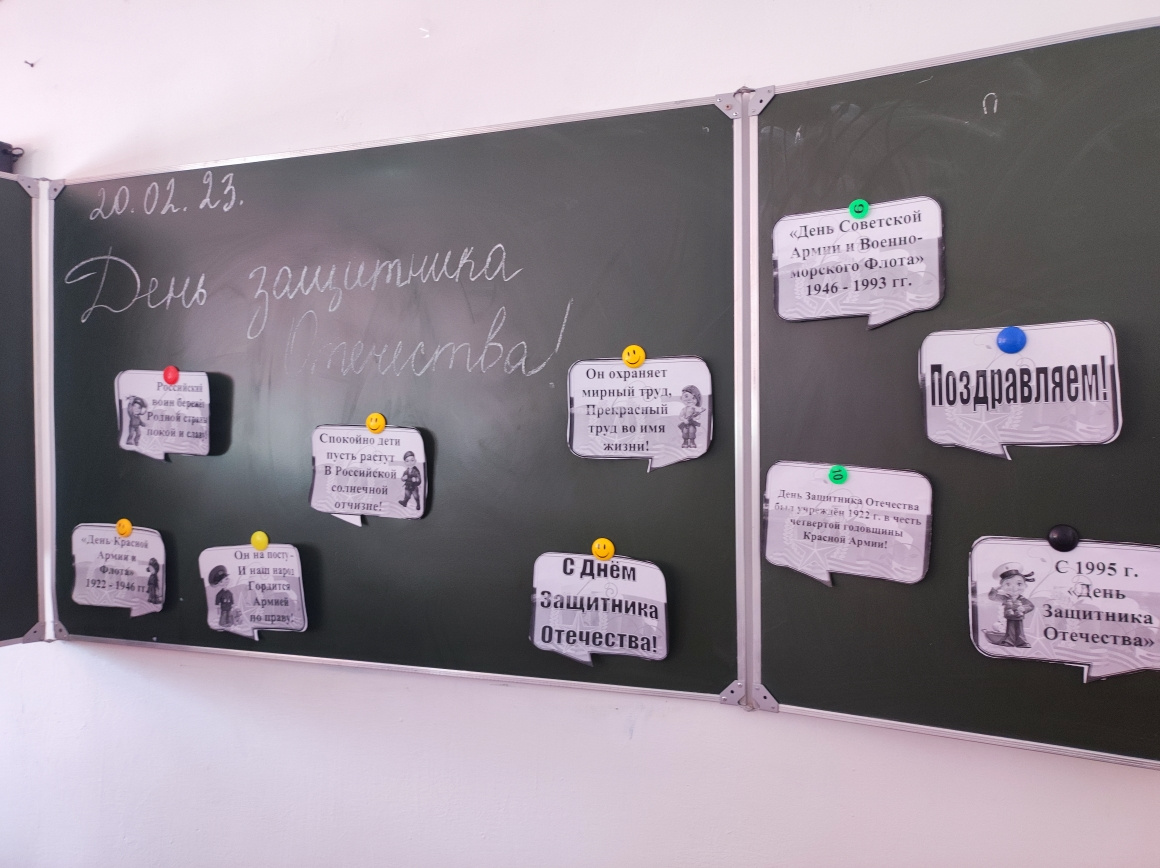 20.02.23.
День защитника
Отечества!
Российский
воин бережёт
Родной страны
покой и славу
Спокойно дети
пусть растут
В Российской
солнечной
отчизне!
Он охраняет
мирный труд,
Прекрасный
труд во имя
жизни!
«День Красной
Армии и
Флота»
1922 - 1946 гг.
Он на посту-
И наш народ
Гордится
Армией
по праву!
С Днём
Защитника
Отечества!
«День Советской
Армии и Военно-
морского Флота»
1946 - 1993 гг.
Поздравляем!
День Защитника Отечества
был учреждён 1922 г. в честь
четвертой годовщины
Красной Армии!
С 1995 г.
«День
Защитника
Отечества»